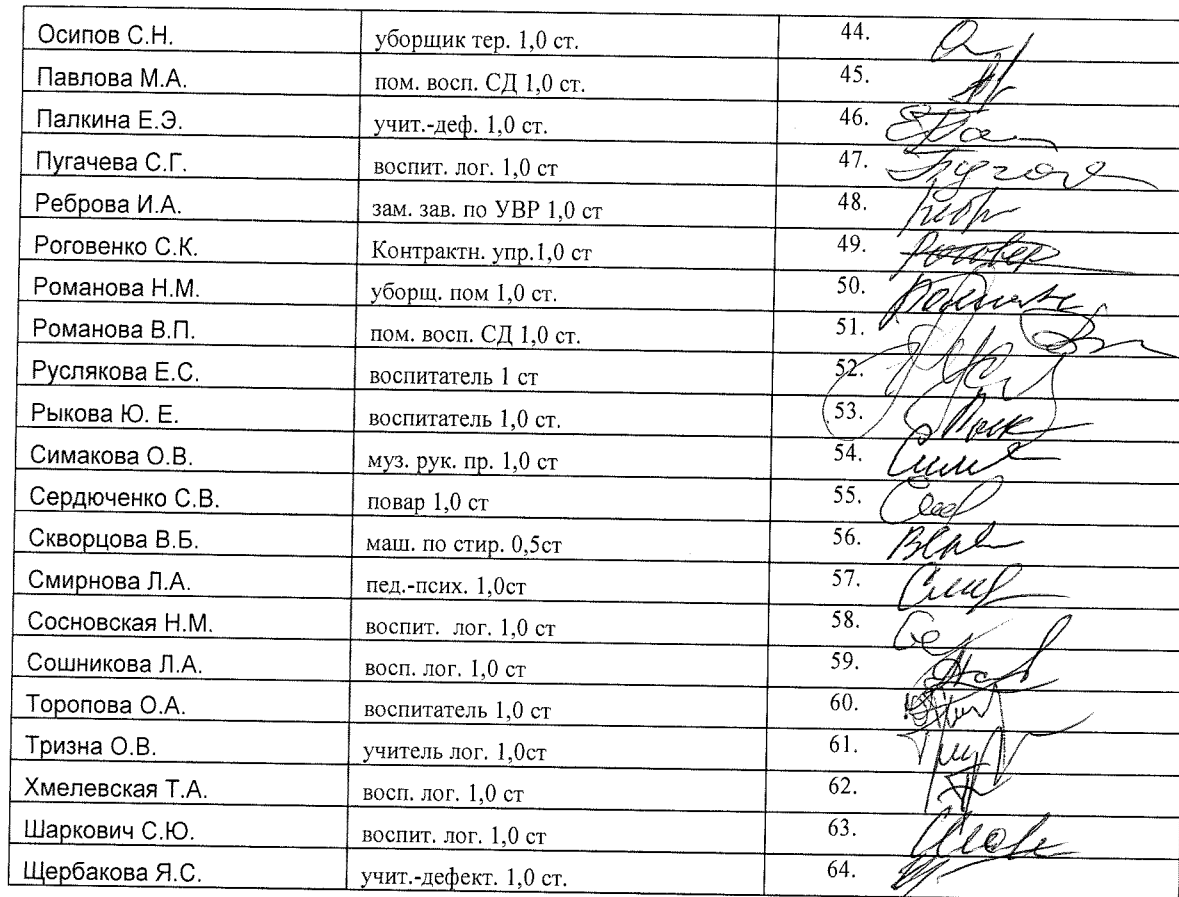 Осипов С.Н. уборщик тер. 1,0 ст. 44.
Павлова М.А. пом. восп. СД 1,0 ст. 45.
Палкина Е.Э. учит.-деф. 1,0 ст. 46.
Пугачева С.Г. воспит. лог. 1,0 ст 47.
Реброва И.А. зам. зав. по УВР 1,0 ст 48.
Роговенко С.К. Контрактн. упр.1,0 ст 49.
Романова Н.М. уборщ. пом 1,0 ст. 50.
Романова В.П. пом. восп. СД 1,0 ст. 51.
Руслякова Е.С. воспитатель 1 ст 52.
Рыкова Ю. Е. воспитатель 1,0 ст. 53.
Симакова О.В. муз. рук. пр. 1,0 ст 54.
Сердюченко С.В. повар 1,0 ст 55.
Скворцова В.Б. маш. по стир. 0,5ст 56.
Смирнова Л.А. пед.-псих. 1,0ст 57.
Сосновская Н.М. воспит. лог. 1,0 ст 58.
Сошникова Л.А. восп. лог. 1,0 ст 59.
Торопова О.А. воспитатель 1,0 ст 60.
Тризна О.В. учитель лог. 1,0ст 61.
Хмелевская Т.А. восп. лог. 1,0 ст 62.
Шаркович С.Ю. воспит. лог. 1,0 ст 63.
Щербакова Я.С. учит.-дефект. 1,0 ст. 64.